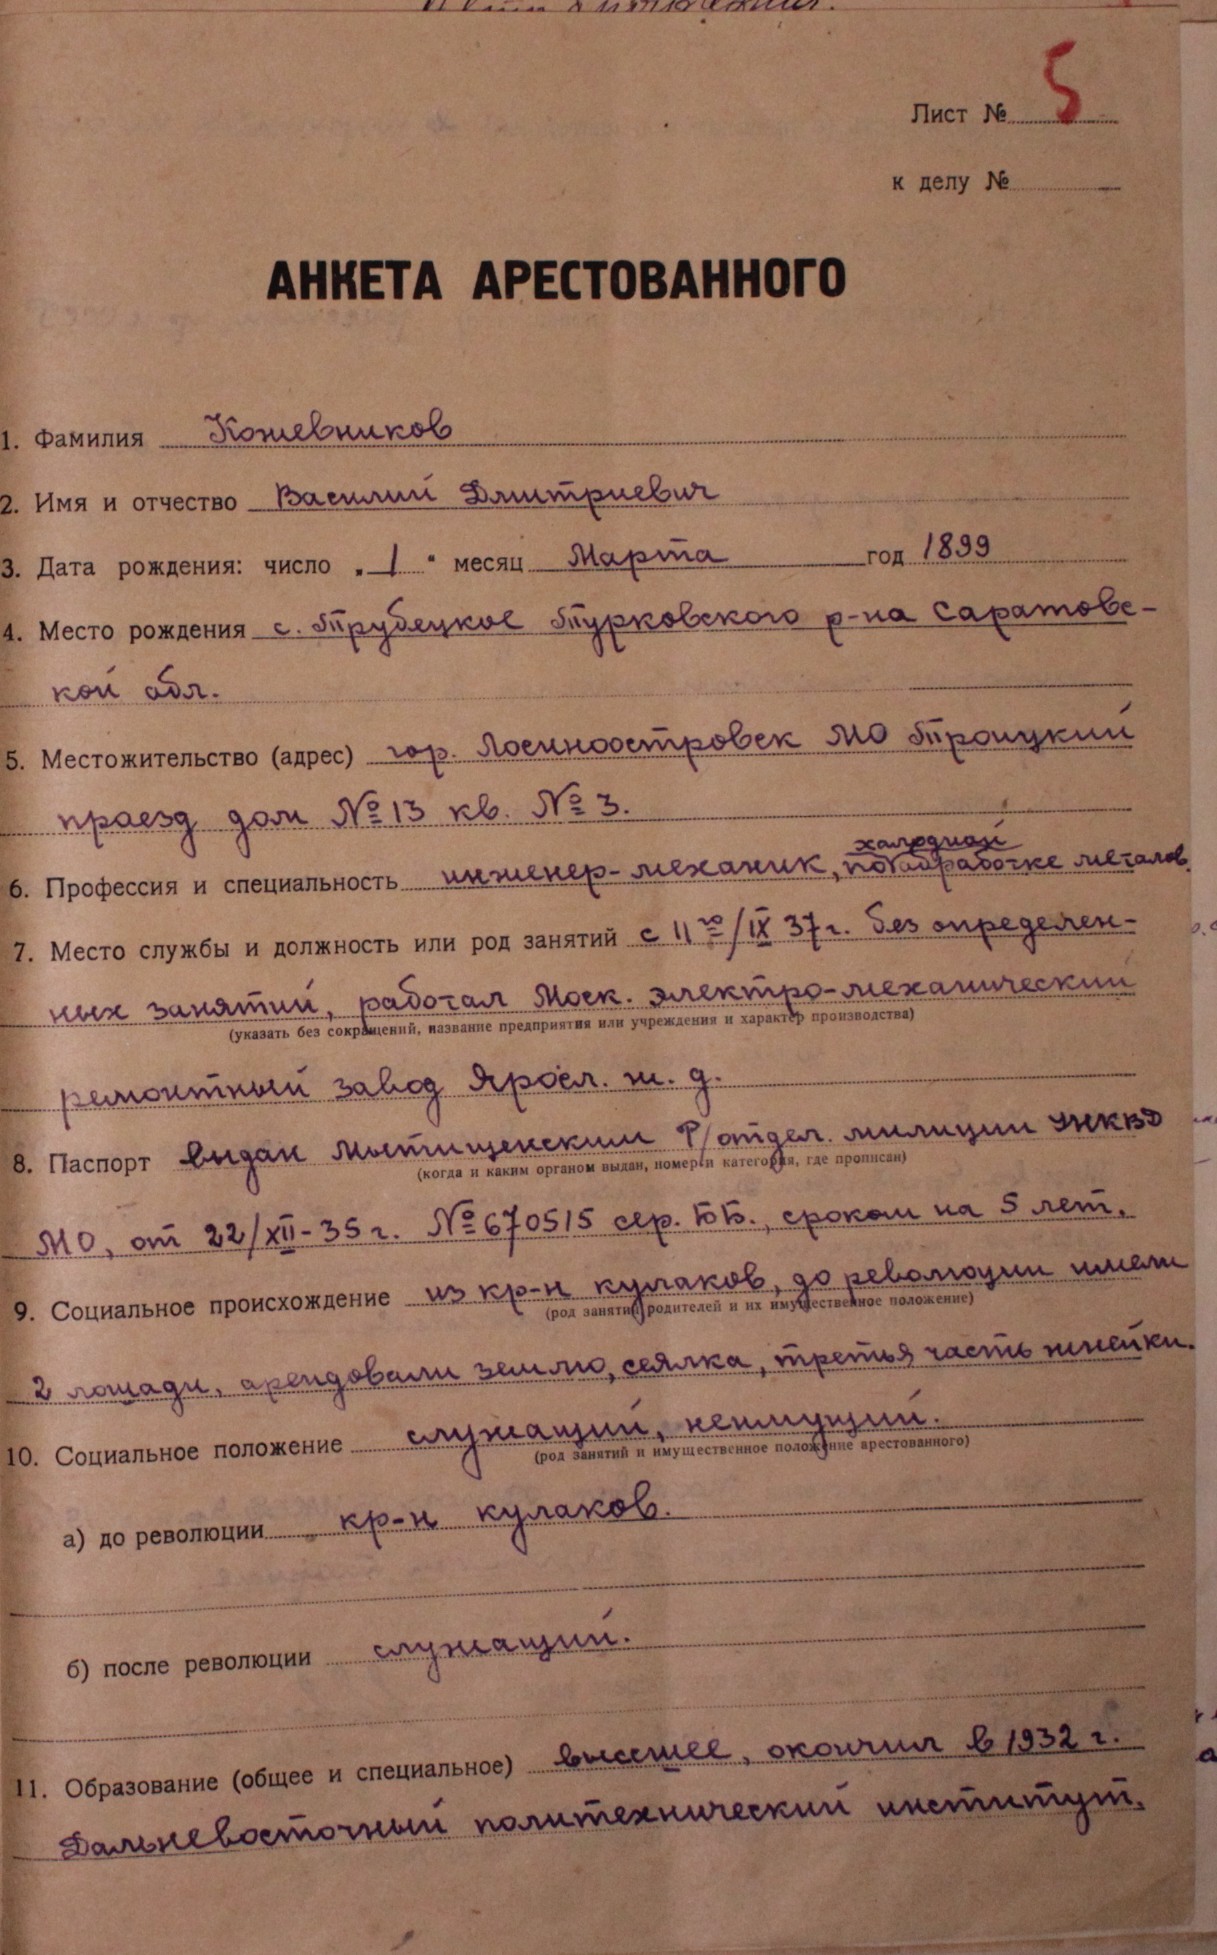 Лист № 5
к делу №
АНКЕТА АРЕСТОВАННОГО
1. Фамилия Кожевников
2. Имя и отчество Василий Дмитриевич
3. Дата рождения: число „1" месяц Марта год 1899
4. Место рождения с. Трубецкое Турковского р-на Саратовс-
кой обл.
5. Местожительство (адрес) гор. Лосиноостровск МО Троицкий
проезд дом № 13 кв. № 3.
холодной
6. Профессия и специальность инженер-механик, по обработке металов.
7. Место службы и должность или род занятий с 11го/IX 37 г. без определен-
ных занятий, работал Моск. электро-механический
(указать без сокращений, название предприятия или учреждения и характер производства)
ремонтный завод Яросл. ж. д.
8. Паспорт выдан Мытищенским Р/отдел. милиции УНКВД
(когда и каким органом выдан, номер и категория, где прописан)
МО, от 22/XII-35 г. № 670515 сер. ББ., сроком на 5 лет.
9. Социальное происхождение из кр-н кулаков, до революции имели
(род занятий родителей и их имущественное положение)
2 лошади, арендовали землю, сеялка, третья часть жнейки.
10. Социальное положение служащий, неимущий.
(род занятий и имущественное положение арестованного)
а) до революции кр-н кулаков.
б) после революции служащий.
11. Образование (общее и специальное) высшее, окончил в 1932 г.
Дальневосточный политехнический институт.